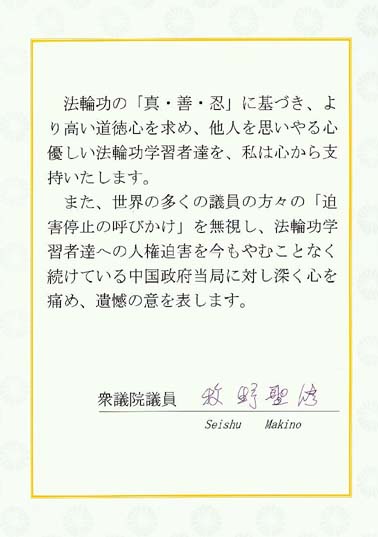 法輪功の「真・善・忍」に基づき、よ
り高い道徳心を求め、他人を思いやる心
優しい法輪功学習者達を、私は心から支
持いたします。
また、世界の多くの議員の方々の「迫
害停止の呼びかけ」を無視し、法輪功学
習者達への人権迫害を今もやむことなく
続けている中国政府当局に対し深く心を
痛め、遺憾の意を表します。
衆議院議員 牧野聖修
Seishu Makino